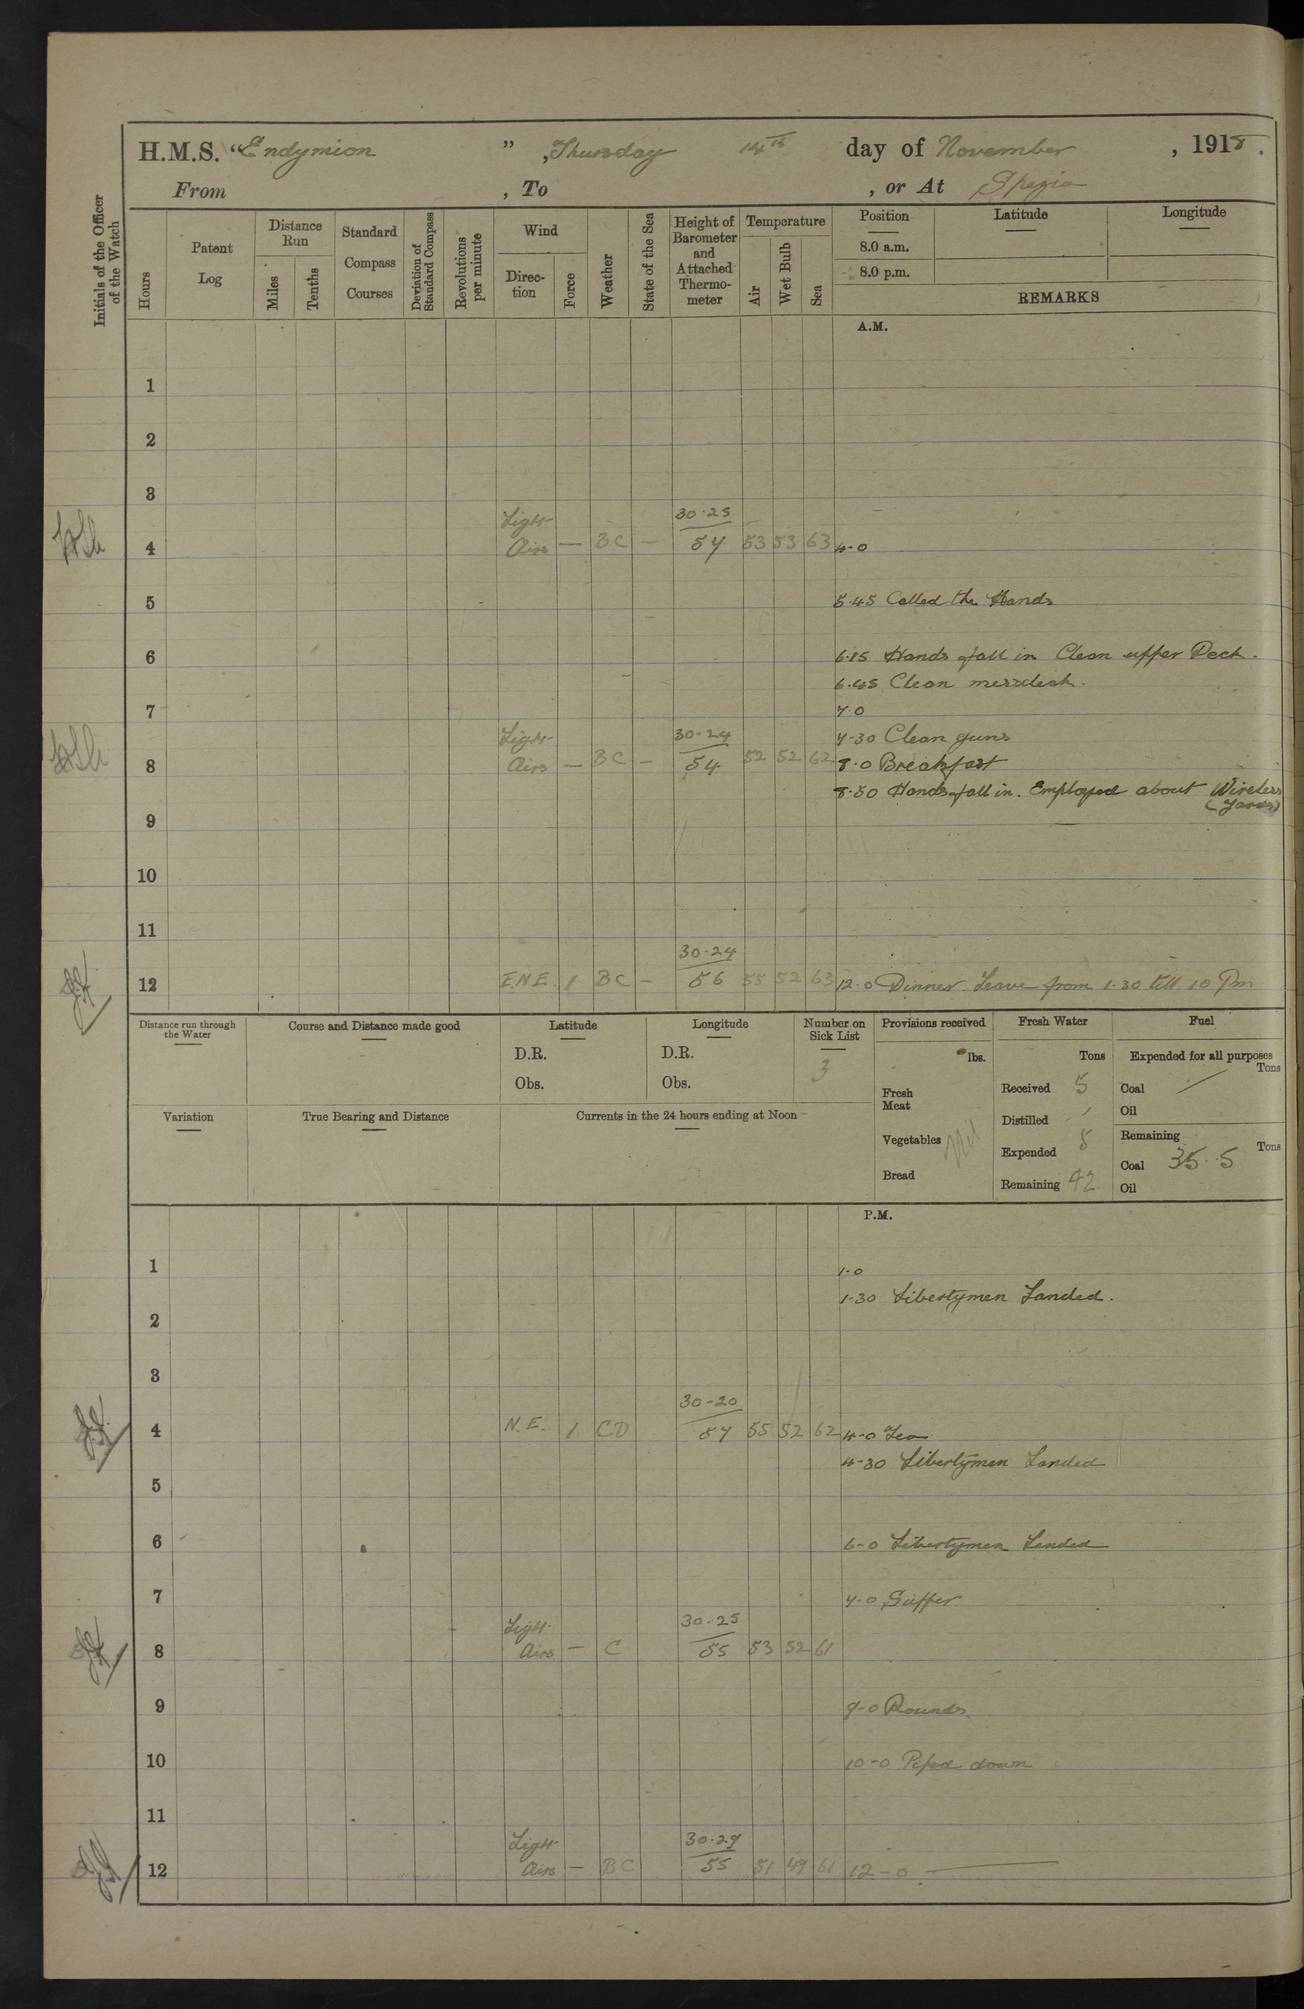 H.M.S. "Endymion", Thursday 14th day of November, 1918.
From , To , or At Spezia
Initials of the Officer of the Watch
Hours
Patent Log
Distance Run
Miles
Tenths
Standard Compass Courses
Deviation of Standard Compass
Revolutions per minute
Wind
Direction
Force
Weather
State of the Sea
Height of Barometer and Attached Thermometer
Temperature
Air
Wet Bulb
Sea
Position
8.0 a.m.
8.0 p.m.
Latitude
Longitude
REMARKS
A.M.
1
2
3
Light 30.25
4 Airs — BC — 57 53 53 63 4-0
5 5.45 Called the Hands
6 6.15 Hands fall in Clean upper Deck.
6.45 Clean messdeck.
7 7.0
Light 30.24 7-30 Clean guns
8 Airs — BC — 54 52 52 62 8.0 Breakfast
8.30 Hands fall in. Employed about Wireless
(Yards)
9
10
11
30.24
12 E.N.E. 1 BC — 56 55 52 63 12.0 Dinner Leave from 1.30 till 10 Pm
Distance run through the Water
Course and Distance made good
Latitude
D.R.
Obs.
Longitude
D.R.
Obs.
Number on Sick List
3
Variation
True Bearing and Distance
Currents in the 24 hours ending at Noon
Provisions received
lbs.
Fresh Meat
Vegetables Nil
Bread
Fresh Water
Tons
Received 5
Distilled
Expended 5
Remaining 42
Fuel
Expended for all purposes
Tons
Coal
Oil
Remaining
Tons
Coal 35.5
Oil
P.M.
1 1.0
1.30 Libertymen Landed.
2
3
30-20
4 N.E. 1 CD 57 55 52 62 4-0 Tea
4-30 Libertymen Landed
5
6 6-0 Libertymen Landed
7 7-0 Supper
Light 30.25
8 Airs — C 55 53 52 61
9 9-0 Rounds
10 10-0 Piped down
11
Light 30.29
12 Airs — BC 55 51 49 61 12-0